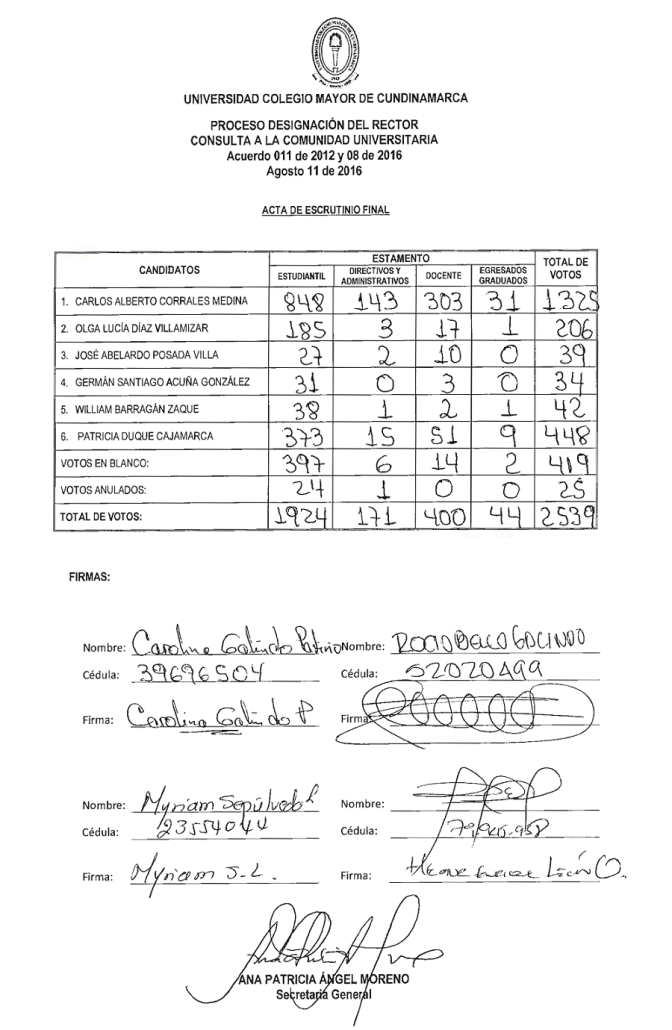 UNIVERSIDAD COLEGIO MAYOR DE CUNDINAMARCA
PROCESO DESIGNACIÓN DEL RECTOR
CONSULTA A LA COMUNIDAD UNIVERSITARIA
Acuerdo 011 de 2012 y 08 de 2016
Agosto 11 de 2016
ACTA DE ESCRUTINIO FINAL
CANDIDATOS ESTAMENTO TOTAL DE VOTOS
ESTUDIANTIL DIRECTIVOS Y ADMINISTRATIVOS DOCENTE EGRESADOS GRADUADOS
1. CARLOS ALBERTO CORRALES MEDINA 848 143 303 31 1325
2. OLGA LUCÍA DÍAZ VILLAMIZAR 185 3 17 1 206
3. JOSÉ ABELARDO POSADA VILLA 27 2 10 0 39
4. GERMÁN SANTIAGO ACUÑA GONZÁLEZ 31 0 3 0 34
5. WILLIAM BARRAGÁN ZAQUE 38 1 2 1 42
6. PATRICIA DUQUE CAJAMARCA 373 15 51 9 448
VOTOS EN BLANCO: 397 6 14 2 419
VOTOS ANULADOS: 24 1 0 0 25
TOTAL DE VOTOS: 1924 171 400 44 2539
FIRMAS:
Nombre: Carolina Galindo Patiño Nombre: ROCIO BELLO GALINDO
Cédula: 39696504 Cédula: 52020499
Firma: Carolina Galindo P Firma:
Nombre: Myriam Sepúlveda L Nombre:
Cédula: 23554044 Cédula:
Firma: Myriam S.L. Firma:
ANA PATRICIA ÁNGEL MORENO
Secretaria General